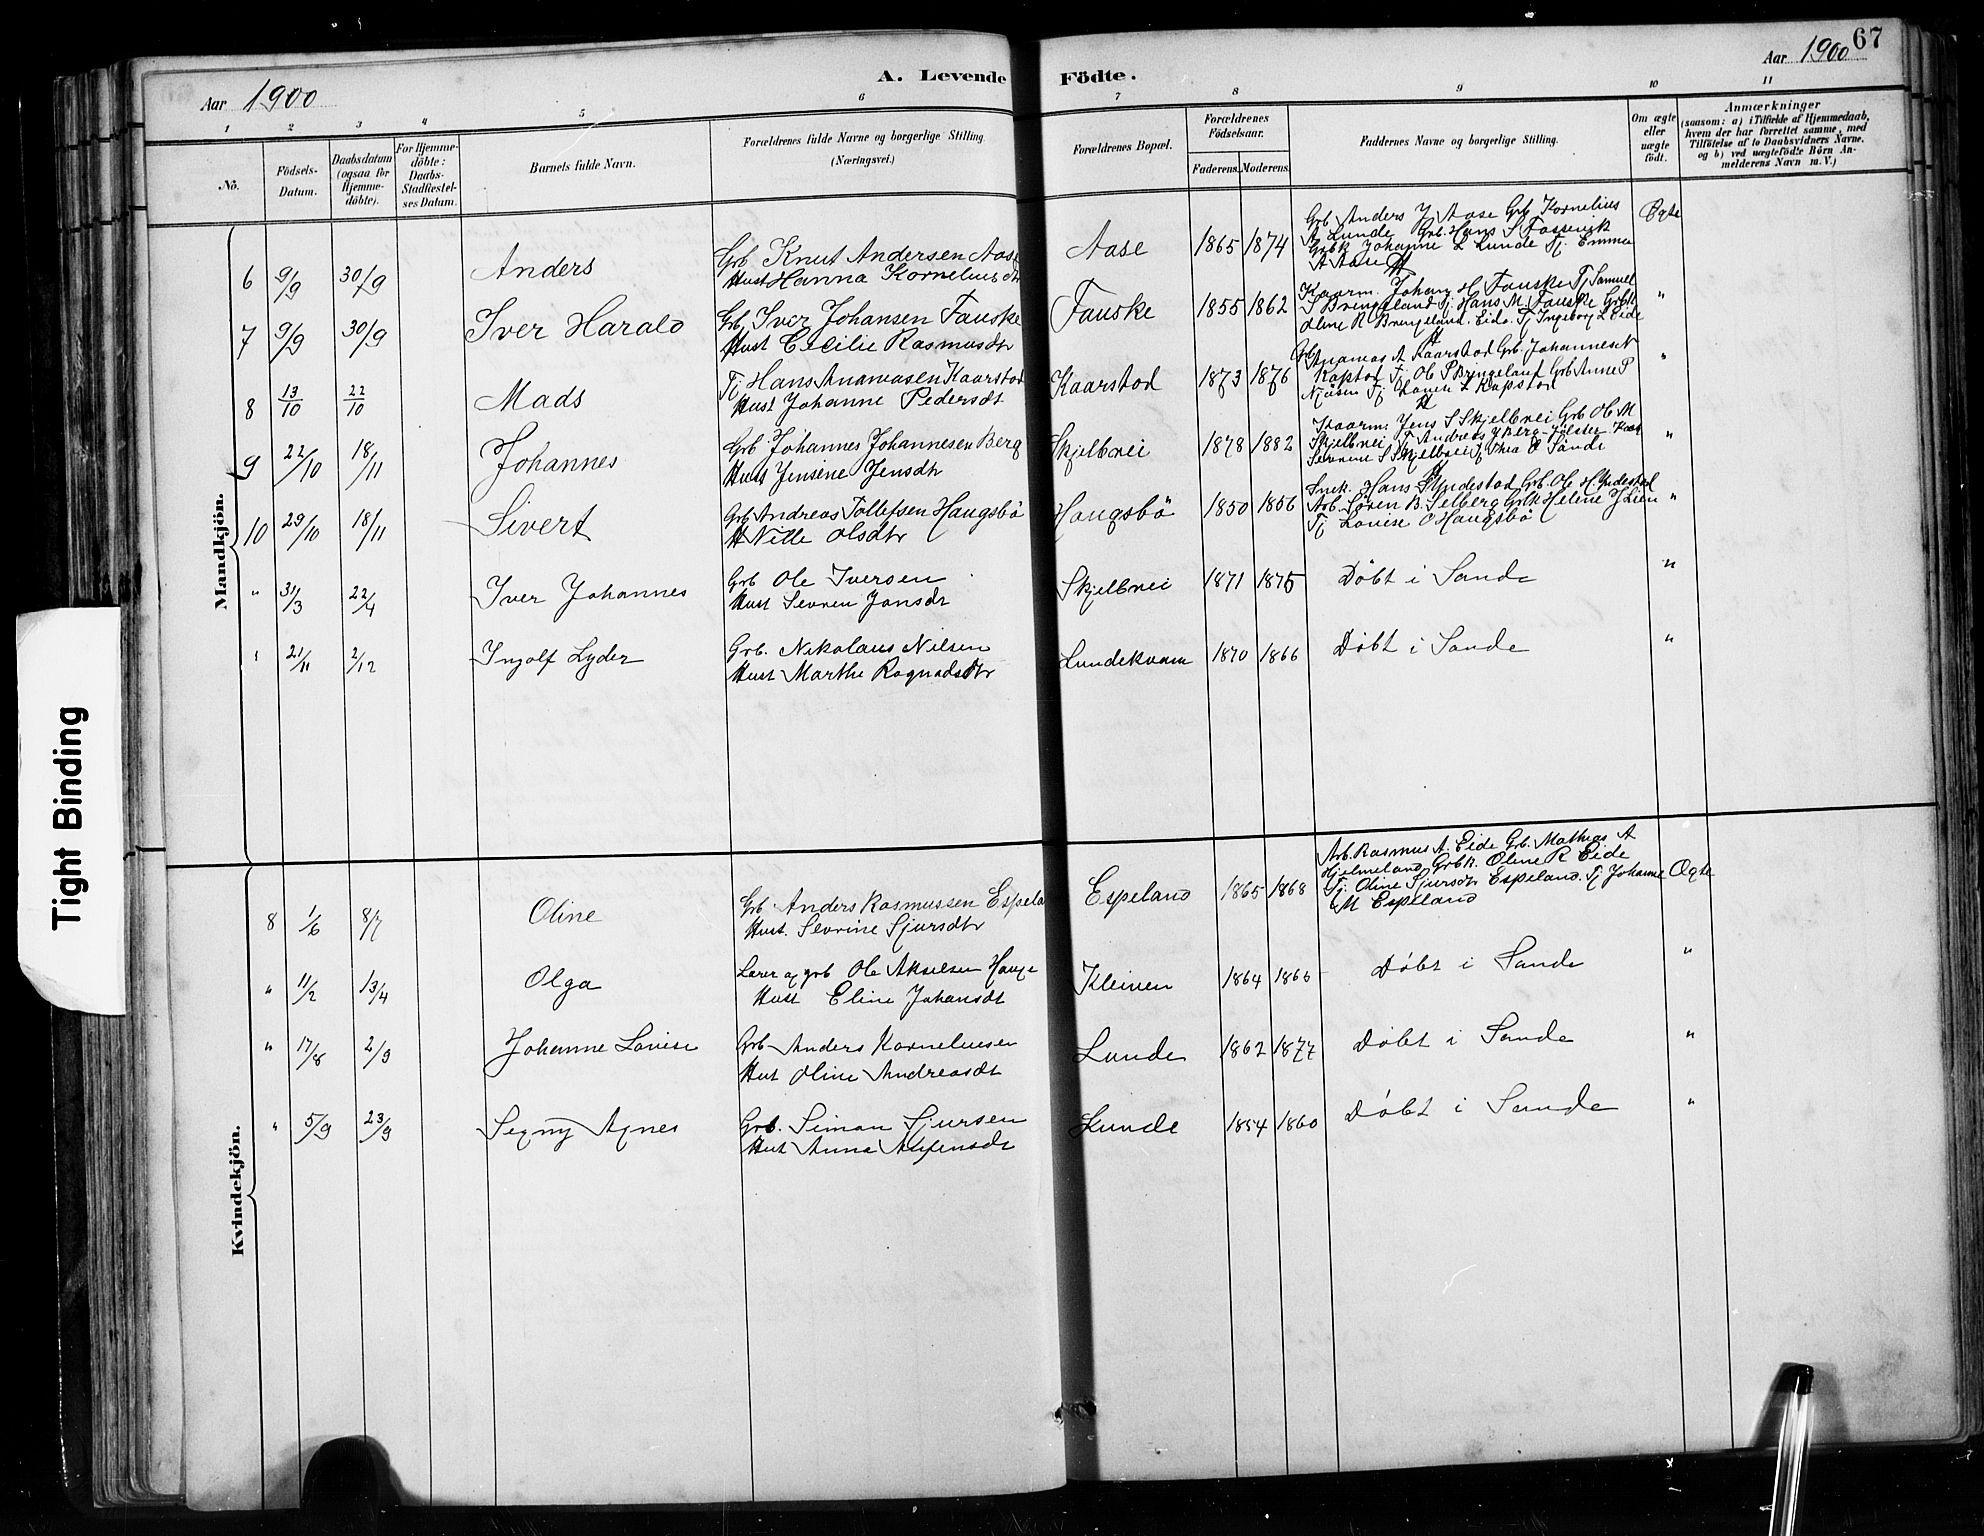 67
Aar 1900
A. Levende Födte.
Aar 1900
1 2 3 4 5 6 7 8 9 10 11
No.
Födsels-Datum.
Daabsdatum (ogsaa for Hjemme-döbte).
For Hjemme-döbte: Daabs-Stadfæstel-ses Datum.
Barnets fulde Navn.
Forældrenes fulde Navne og borgerlige Stilling.
(Næringsvei.)
Forældrenes Bopæl.
Forældrenes Födselsaar.
Faderens. Moderens.
Faddernes Navne og borgerlige Stilling.
Om ægte eller uægte födt.
Anmærkninger
(saasom: a) i Tilfælde af Hjemmedaab,
hvem der har forrettet samme, med
Tilföielse af to Daabsvidners Navne,
og b) ved uægtefödte Börn An-
melderens Navn m. V.)
Mandkjön.
6 9/9 30/9 Anders Grb Knut Andersen Aase
Hust Hanna Kornelius dt
Aase 1865 1874
Grb Anders J Aase Grb Kornelius
A Lunde Grb. Hans S Fossevik
Grbk Johanne L Lunde Tj. Emma
A Aase
Ægte
7 9/9 30/9 Iver Harald Grb Iver Johansen Fauske
Hust Cecilie Rasmusdtr
Fauske 1855 1862
Kaarm. Johan H Fauske Tj Samuel
S Bringeland Tj. Hans M. Fauske Grbk
Oline R Bringeland. Eide. Tj Ingeborg L Eide
"
8 13/10 22/10 Mads Tj Hans Ananiasen Kaarstad
Hust Johanne Pedersdt
Kaarstad 1873 1876
Grb Ananias A Kaarstad Grb. Johannes N
Kapstad Tj Ole P Bringeland Grb Anne P
Tj L Kapstad
"
9 22/10 18/11 Johannes Grb Johannes Johannesen Berg
Hust Jensine Jensdt
Skjelbrei 1878 1882
Kaarm. Jens S Skjelbrei Grb Ole M
Skjelbrei T Andreas J Berg Jölster
Severine S Skjelbrei Tj Thea O Sande
"
10 29/10 18/11 Sivert Grb Andreas Tollefsen Haugsbö
H Nille Olsdtr
Haugsbö 1850 1856
Snek. Hans Indestad Grb. Ole H Indestad
Arb. Sören B. Selberg Grbk Helene J Lien
Tj Lovise O Haugsbö
"
" 31/3 22/4 Iver Johannes Grb Ole Iversen
Hust Sevren Jonsdt
Skjelbrei 1871 1875 Döbt i Sande "
" 21/11 2/12 Ingolf Lyder Grb. Nikolaus Nilsen
Hust Marthe Ragnadsdtr
Lundekvam 1870 1866 Döbt i Sande "
Kvindekjön.
8 1/6 8/7 Oline Grb. Anders Rasmussen Espela
Hust. Sevrine Sjursdtr
Espeland 1865 1868
Arb. Rasmus A. Eide Grb. Mathias A
Hjelmeland Grbk. Oline R Eide
Tj. Oline Sjursdtr Espeland. Tj Johanne
M Espeland
Ægte
" 11/2 13/4 Olga Lærer og grb Ole Akselsen Hauge
Hust Eline Johansdt
Kleiven 1864 1860 Döbt i Sande "
" 17/8 2/9 Johanne Lovise Grb Anders Korneliusen
Hust Oline Andreasdt
Lunde 1862 1877 Döbt i Sande "
" 5/9 23/9 Signy Agnes Grb. Simon Sjursen
Hust Anna
Lunde 1854 1860 Döbt i Sande "
Tight Binding